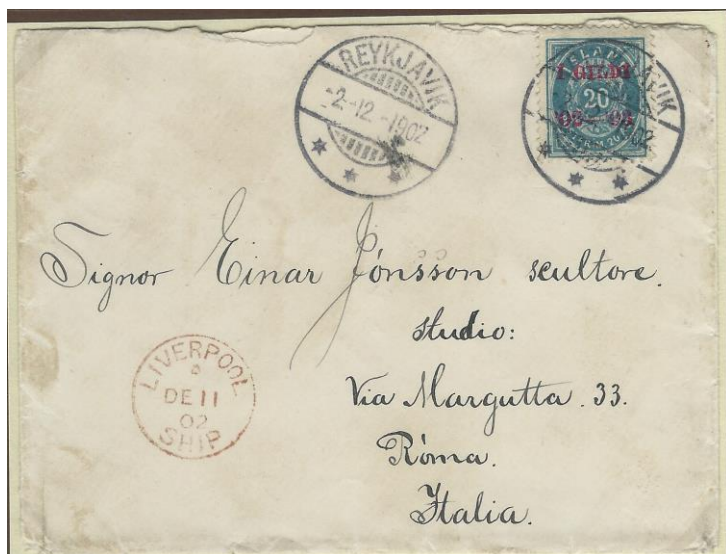 REYKJAVIK
-2.-12.-1902
ISLAND
Í GILDI
20
'02-'03
VIK
02
Signor Einar Jónsson scultore.
studio:
Via Margutta . 33.
Róma.
Italia.
LIVERPOOL
DE 11
02
SHIP